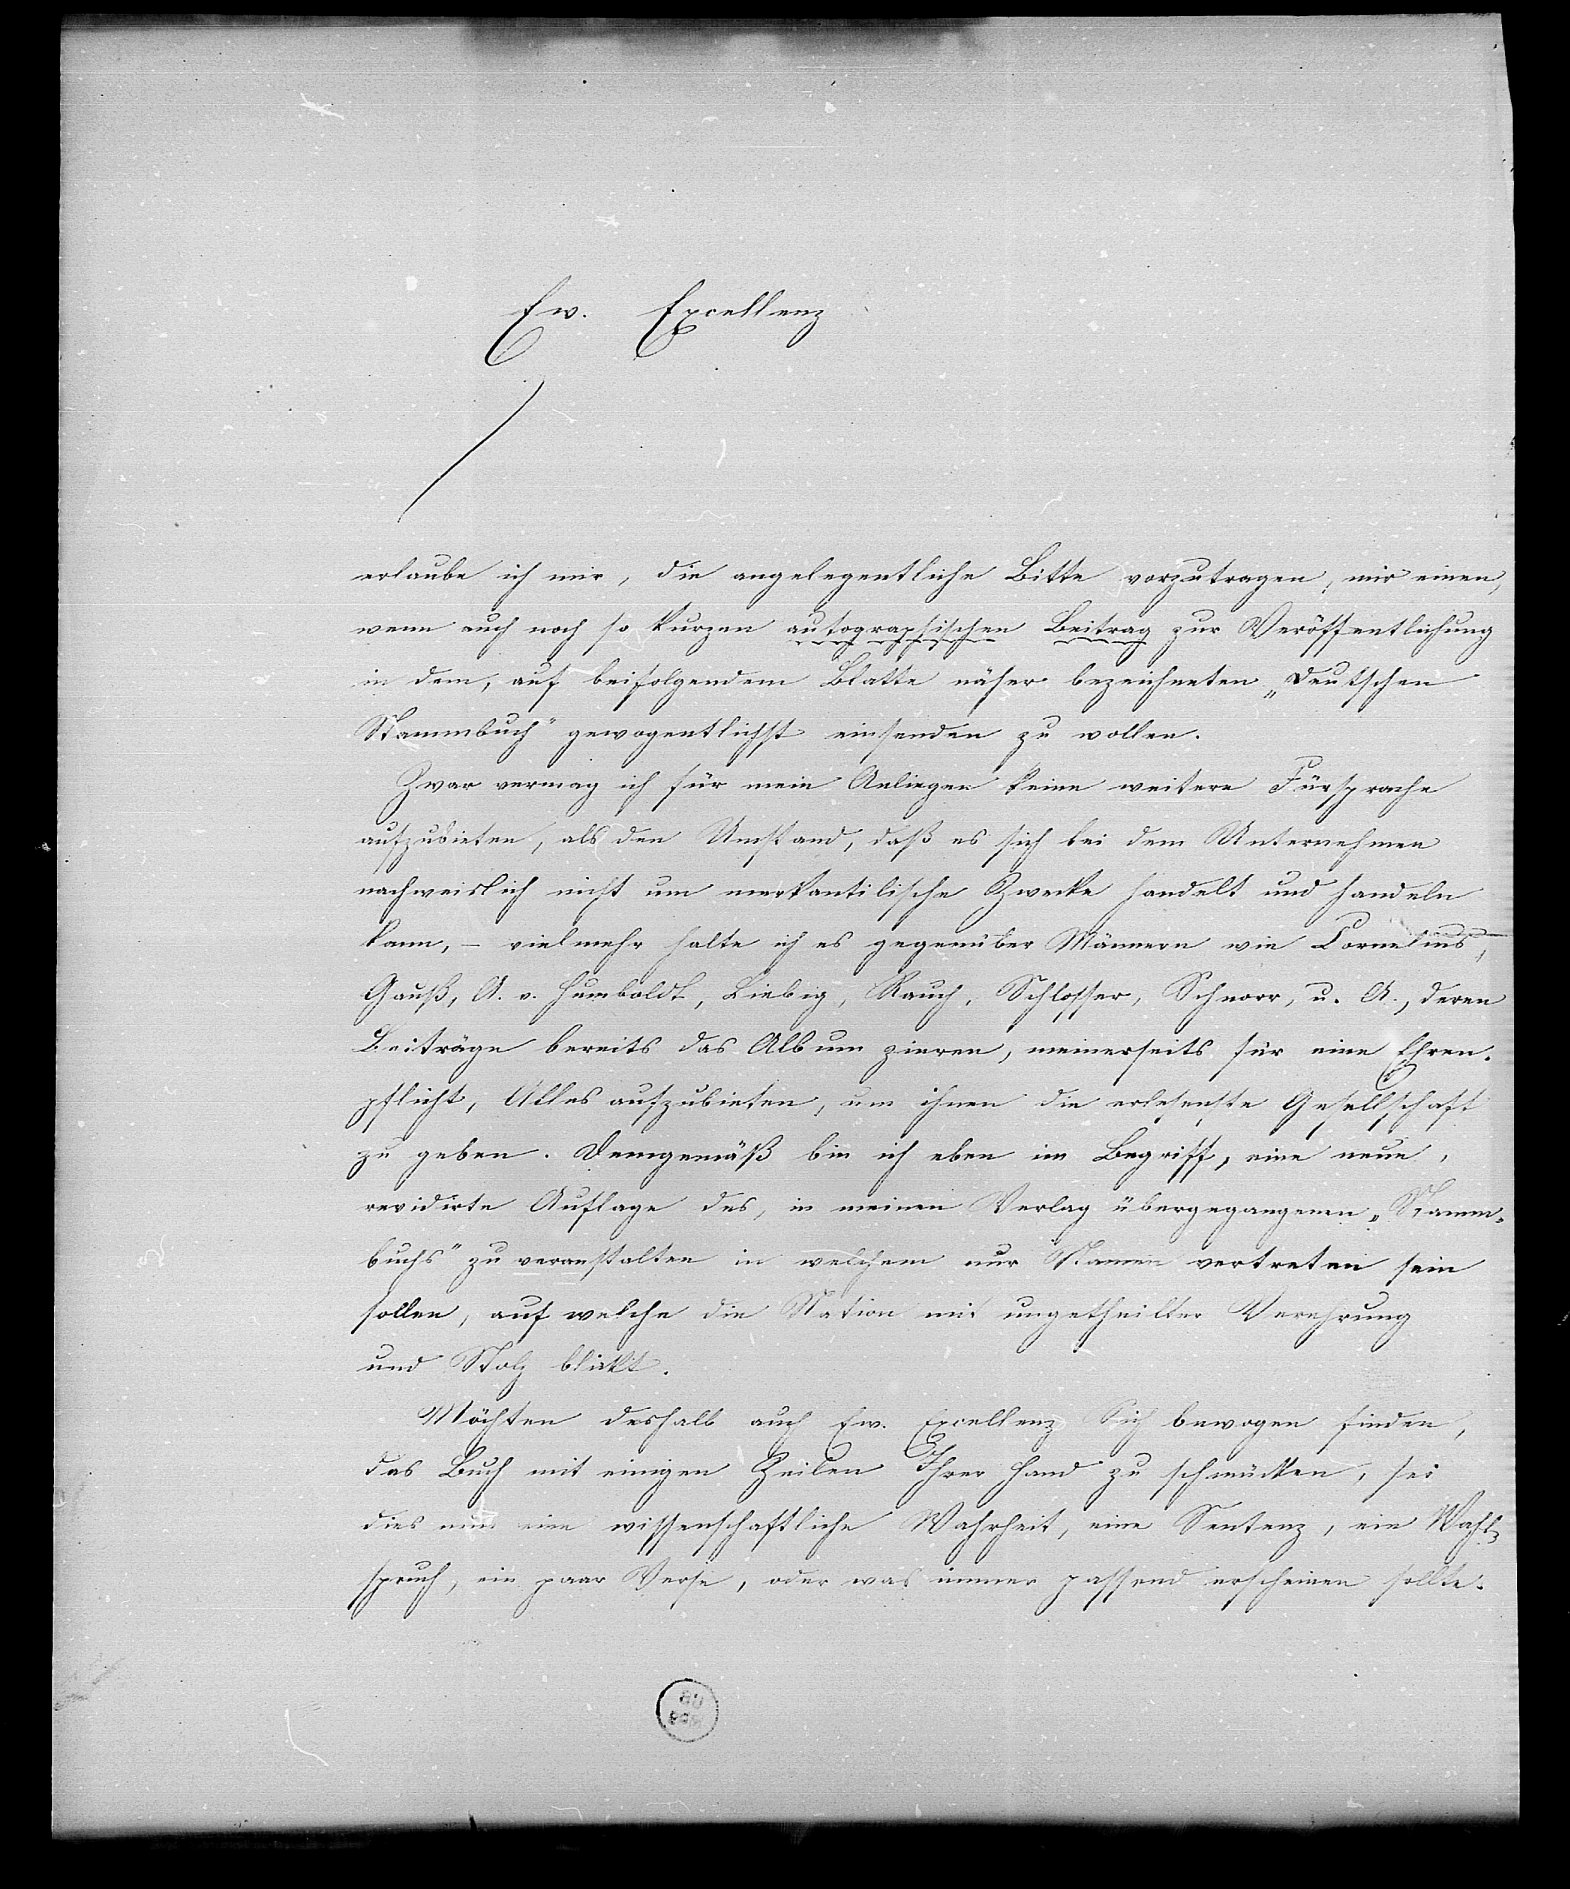 Ew. Excellenz
erlaube ich mir, die angelegentliche Bitte vorzutragen, mir einen,
wenn auch noch so kurzen autographischen Beitrag zur Veröffentlichung
in dem, auf beifolgendem Blatte näher bezeichneten „Deutschen
Stammbuch" gewogentlichst einsenden zu wollen.
Zwar vermag ich für mein Anliegen keine weitere Fürsprache
aufzubieten, als den Umstand, daß es sich bei dem Unternehmen
nachweislich nicht um merkantilische Zwecke handelt und handeln
kann, – vielmehr halte ich es gegenüber Männern wie Cornelius,
Gauß, A. v. Humboldt, Liebig, Rauch, Schlosser, Schnorr, u. A., deren
Beiträge bereits das Album zieren, meinerseits für eine Ehren-
pflicht, Alles aufzubieten, um ihnen die erlesenste Gesellschaft
zu geben. Demgemäß bin ich eben im Begriff, eine neue,
revidirte Auflage des, in meinen Verlag übergegangenen „Stamm-
buchs" zu veranstalten in welchem nur Namen vertreten sein
sollen, auf welche die Nation mit ungetheilter Verehrung
und Stolz blickt.
Möchten deshalb auch Ew. Excellenz Sich bewogen finden,
das Buch mit einigen Zeilen Ihrer Hand zu schmücken, sei
dies nun eine wissenschaftliche Wahrheit, eine Sentenz, ein Wahl-
spruch, ein paar Verse, oder was immer passend erscheinen sollte.